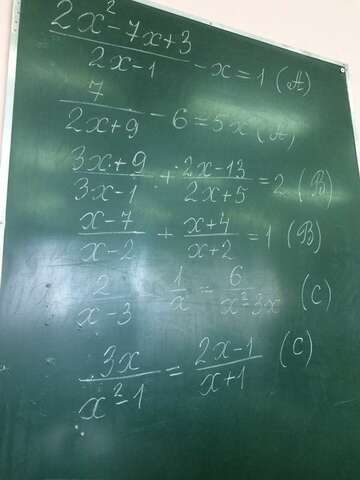 (2x²-7x+3)/(2x-1) - x = 1 (A)
7/(2x+9) - 6 = 5x (A)
(3x+9)/(3x-1) + (2x-13)/(2x+5) = 2 (B)
(x-7)/(x-2) + (x+4)/(x+2) = 1 (B)
2/(x-3) - 1/x = 6/(x²-3x) (C)
3x/(x²-1) = (2x-1)/(x+1) (C)